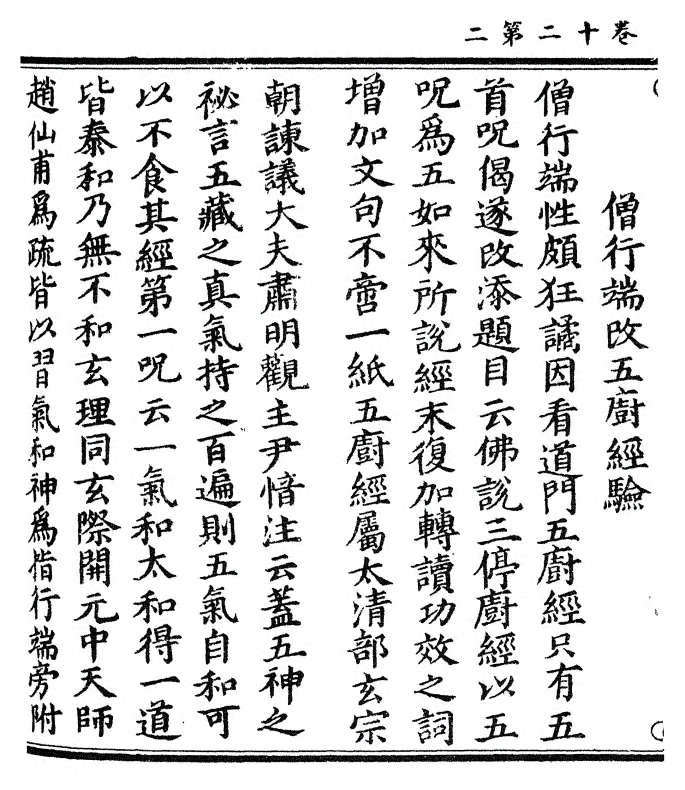 卷十二第二
僧行端改五廚經驗
僧行端性頗狂譎因看道門五廚經只有五
首呪偈遂改添題目云佛說三停廚經以五
呪爲五如來所說經末復加轉讀功效之詞
增加文句不啻一紙五廚經屬太清部玄宗
朝諫議大夫肅明觀主尹愔注云蓋五神之
祕言五藏之真氣持之百遍則五氣自和可
以不食其經第一呪云一氣和太和得一道
皆泰和乃無不和玄理同玄際開元中天師
趙仙甫爲疏皆以習氣和神爲指行端旁附